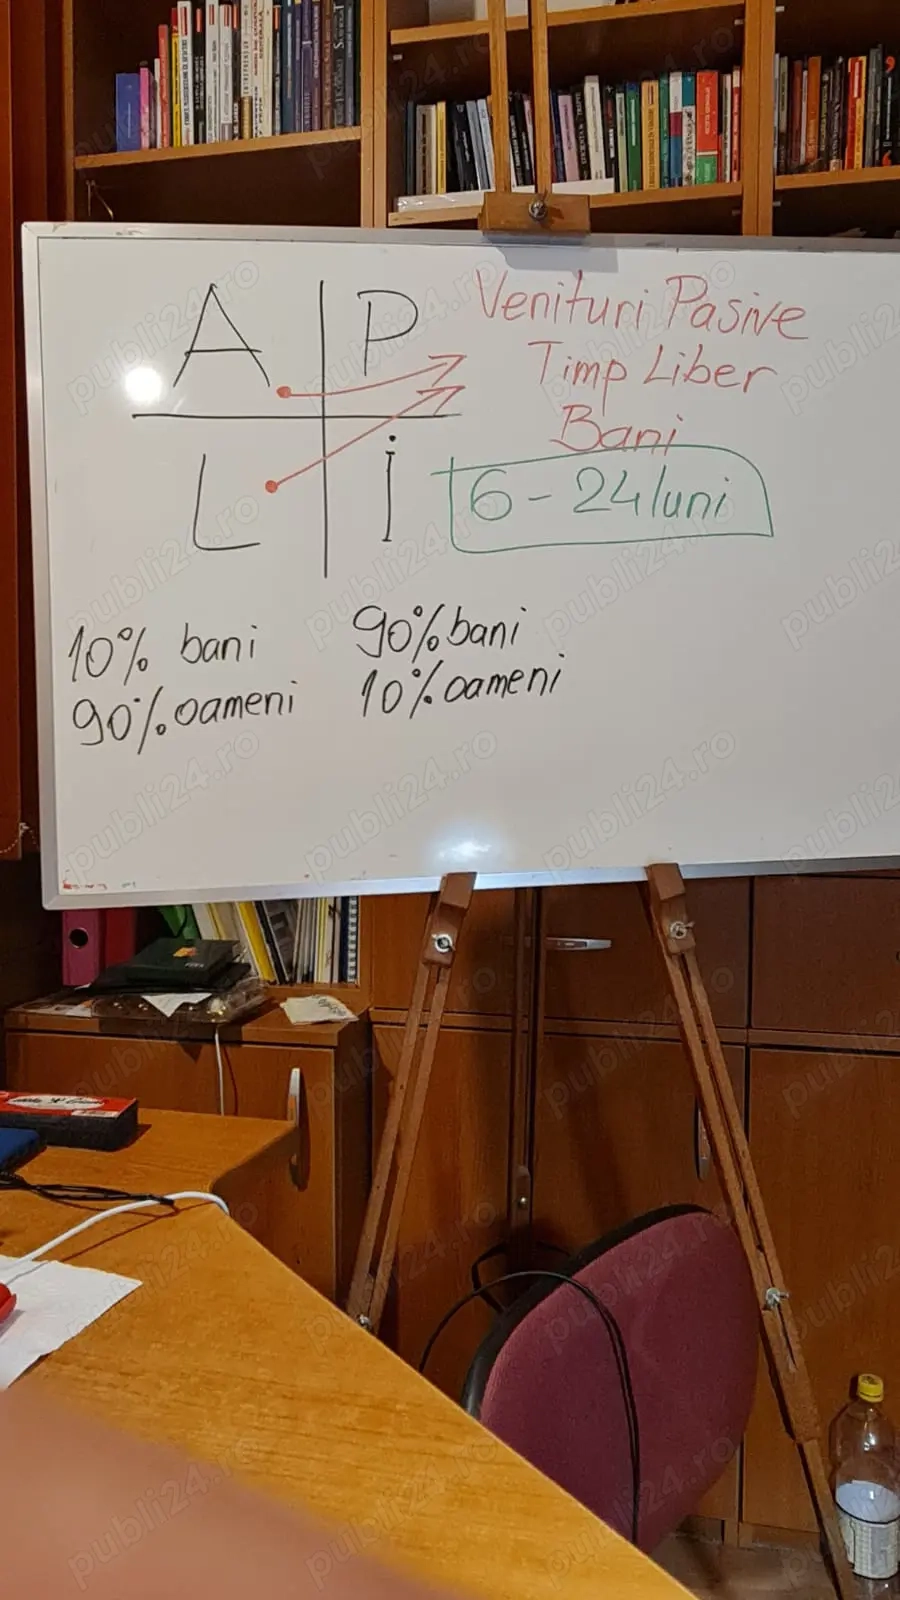 A P
L i
Venituri Pasive
Timp Liber
Bani
6 - 24 luni
10% bani
90% oameni
90% bani
10% oameni
publi24.ro